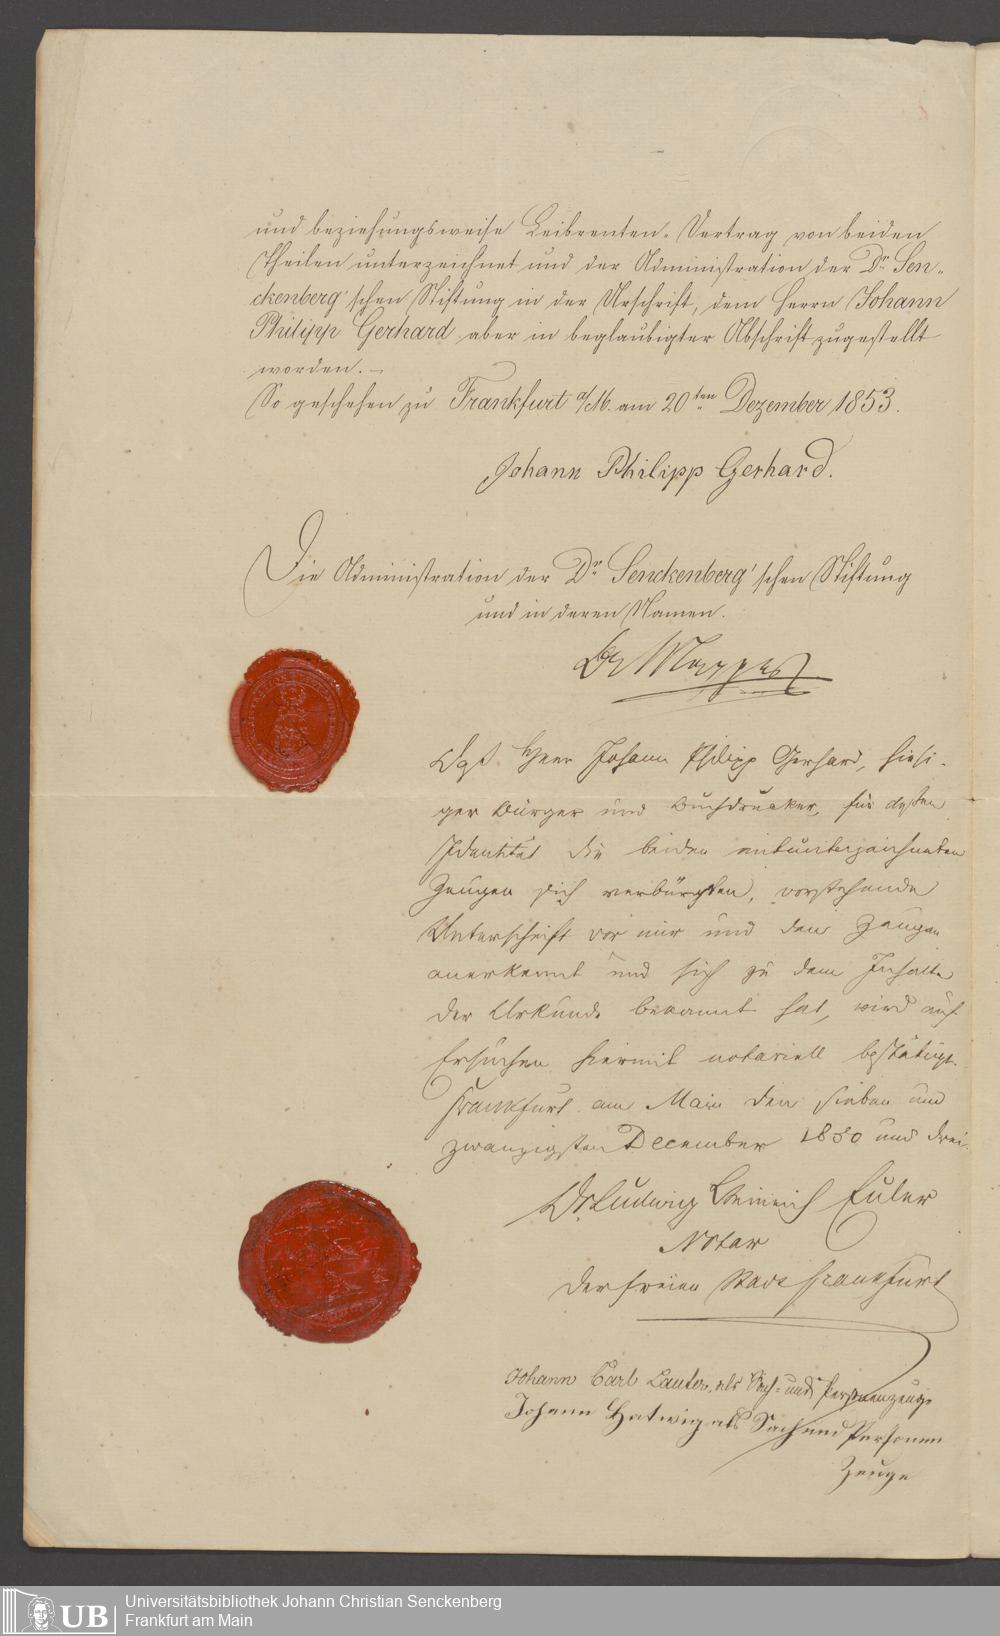 und beziehungsweise Leibrenten-Vertrag von beiden
Theilen unterzeichnet und der Administration der Dr Sen-
ckenberg'schen Stiftung in der Urschrift, dem Herrn Johann
Philipp Gerhard aber in beglaubigter Abschrift zugestellt
worden. —
So geschehen zu Frankfurt a/M. am 20ten Dezember 1853.
Johann Philipp Gerhard.
Die Administration der Dr Senckenberg'schen Stiftung
und in deren Namen.
Dr Mappes
Daß Herr Johann Philipp Gerhard, hiesi-
ger Bürger und Buchdrucker, für dessen
Identität die beiden mitunterzeichneten
Zeugen sich verbürgten, vorstehende
Unterschrift vor mir und den Zeugen
anerkannt und sich zu dem Inhalte
der Urkunde bekannt hat, wird auf
Ersuchen hiermit notariell bestätigt.
Frankfurt am Main den sieben und
zwanzigsten December 1850 und drei.
Dr Ludwig Heinrich Euler
Notar
der freien Stadt Frankfurt
Johann Carl Lauter, als Sach- und Personenzeuge
Johann Hatwig als Sach und Personen
Zeuge
UB
Universitätsbibliothek Johann Christian Senckenberg
Frankfurt am Main